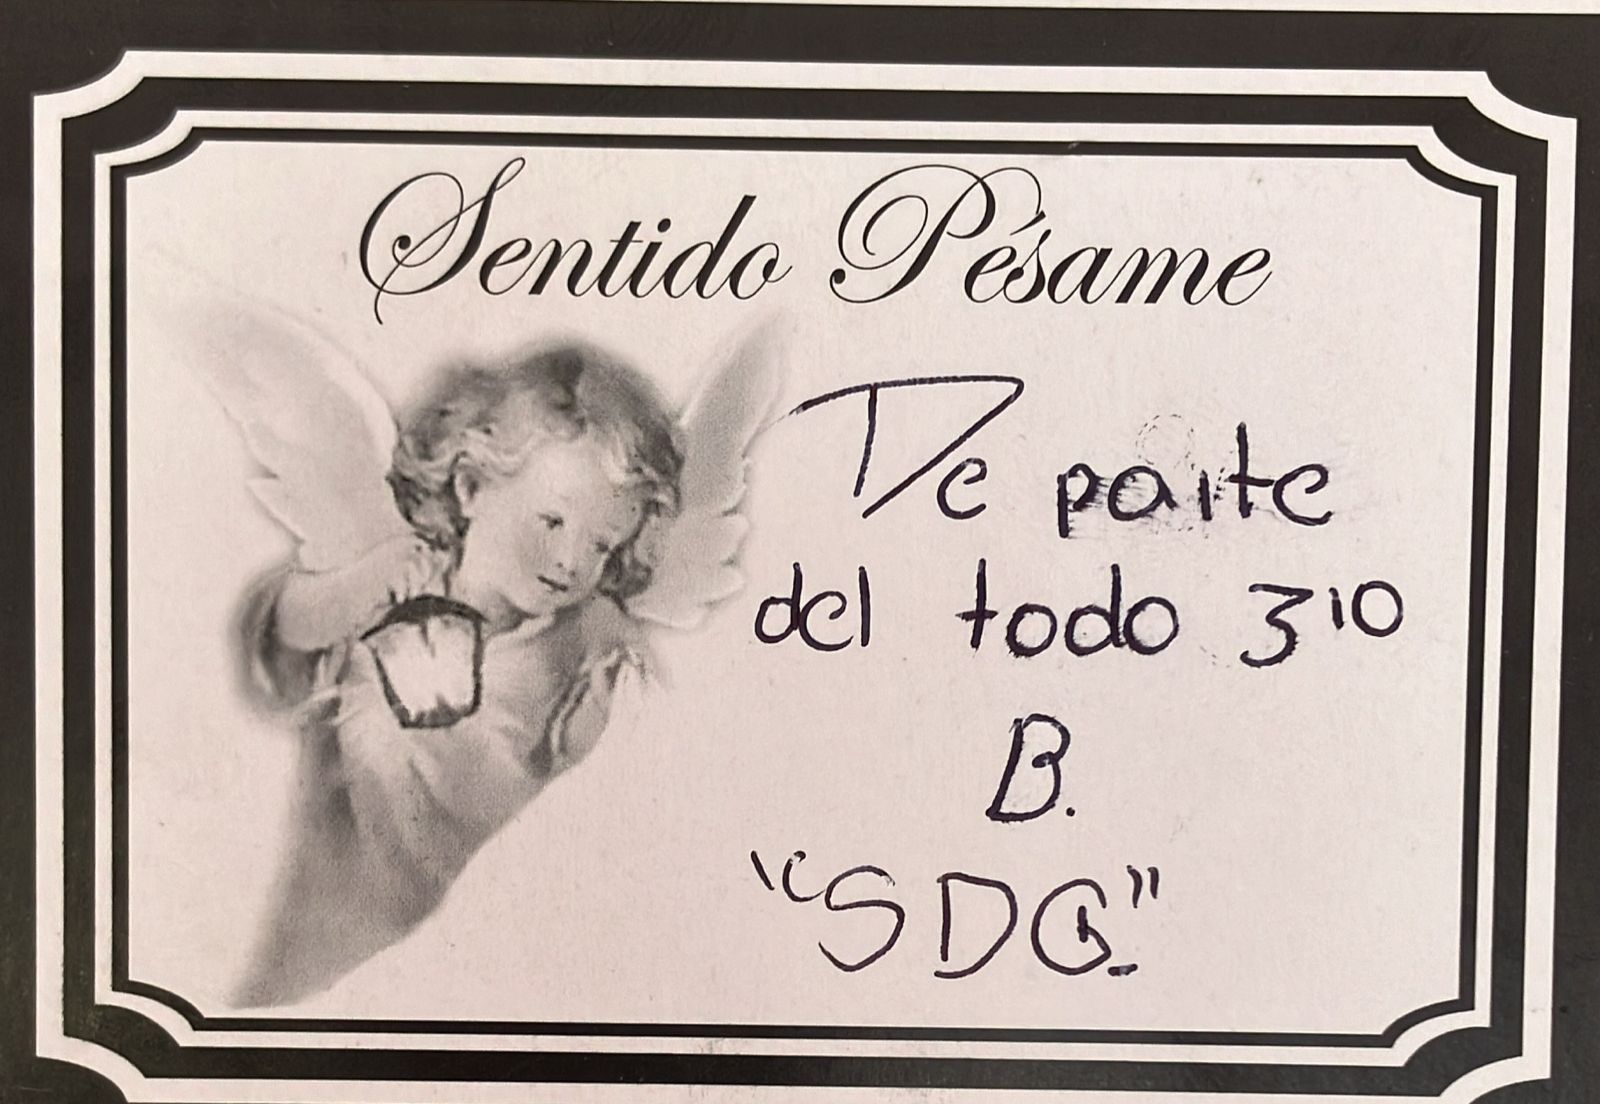 Sentido Pésame
De parte
del todo 3ro
B.
"SDG."